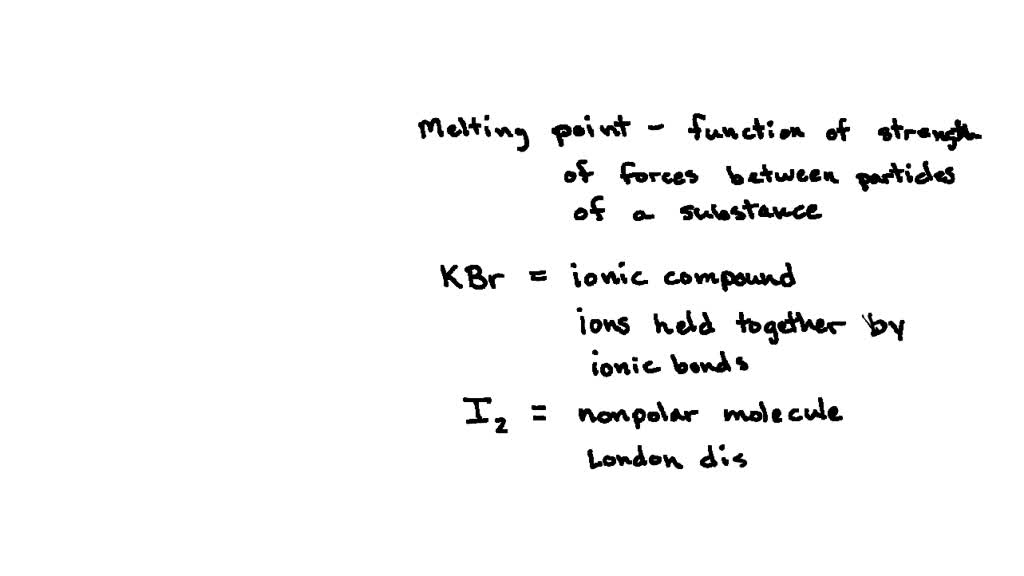 Melting point - function of strength
of forces between particles
of a substance
KBr = ionic compound
ions held together by
ionic bonds
I₂ = nonpolar molecule
London dis